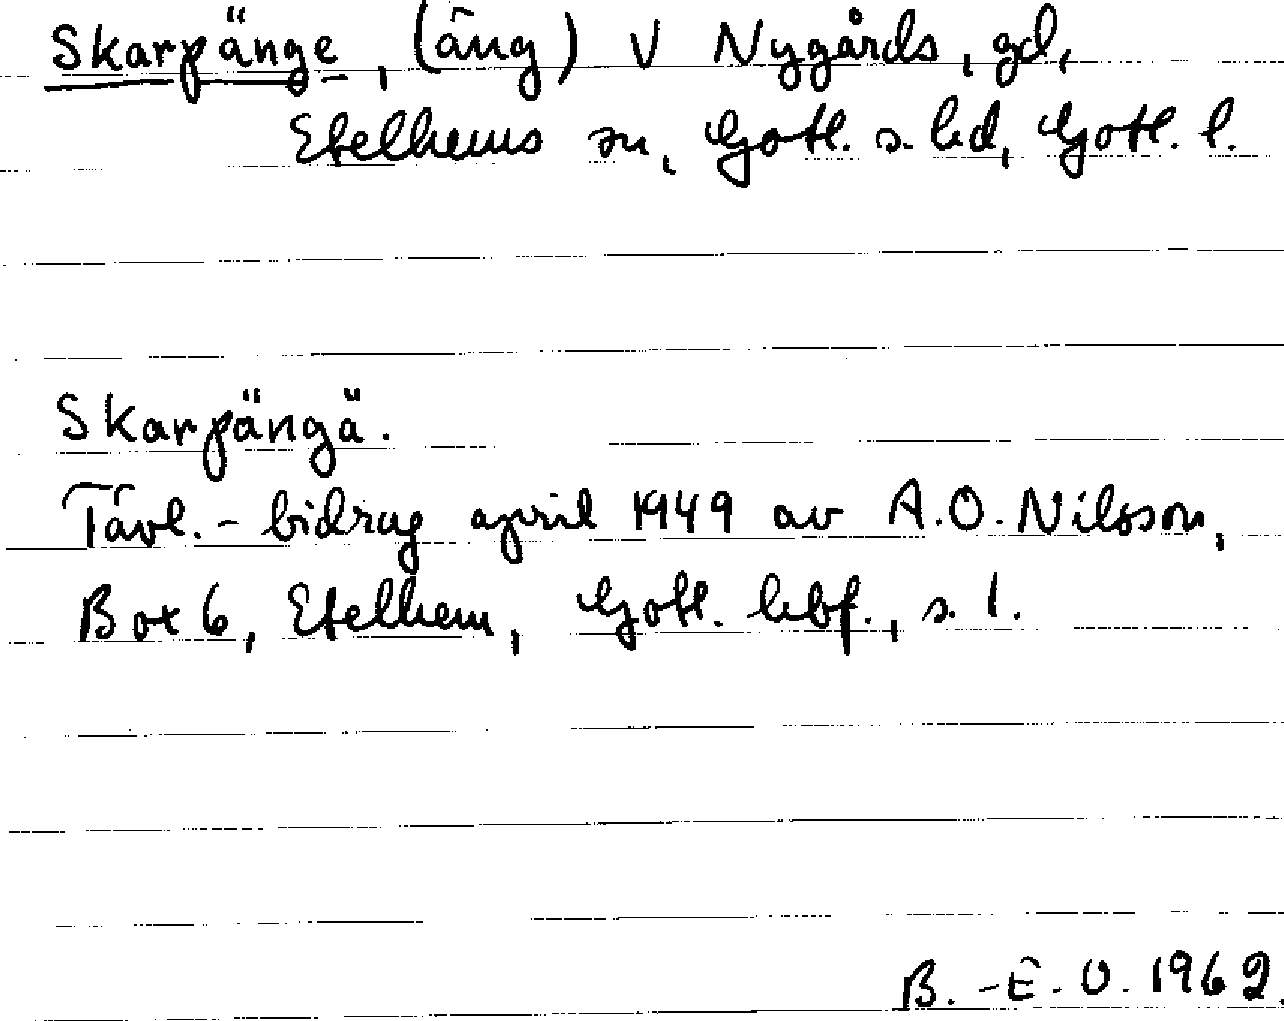 Skarpänge, (äng) V Nygårds, gd,
Etelhems sn, Gotl. s. hd, Gotl. l.
Skarpängä.
Tävl.-bidrag april 1949 av A.O. Nilsson,
Box 6, Etelhem, Gotl. hbf., s. 1.
B.-E. O. 1962.